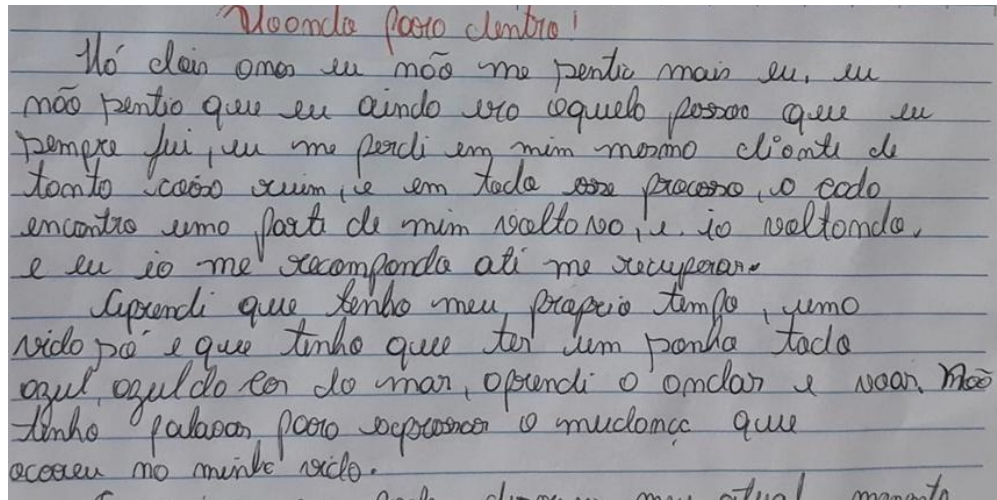 Voando para dentro!
Há dois anos eu não me sentia mais eu, eu
não sentia que eu ainda era aquela pessoa que eu
sempre fui, eu me perdi em mim mesmo diante de
tanta coisa ruim, e em todo esse processo, a cada
encontro uma parte de mim voltava, e ia voltando,
e eu ia me recompondo até me recuperar.
Aprendi que tenho meu próprio tempo, uma
vida só e que tinha que ter um sonho todo
azul, azul da cor do mar, aprendi a andar e voar. Não
tenho palavras para expressar a mudança que
ocorreu na minha vida.
meu atual momento